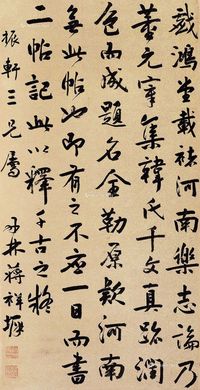 戲鴻堂載褚河南樂志論乃
董元宰集韓氏千文真跡潤
色而成題名全勒原款河南
無此帖也即有之不應一日而書
二帖記此以釋千古之疑
振軒三兄屬
丹林蔣祥墀